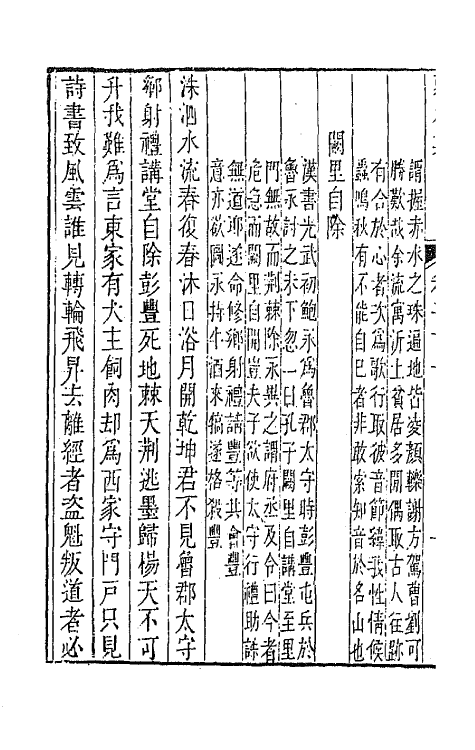 謂握赤水之珠遍地皆凌顏轢謝方駕曹劉可
勝歎哉余流寓沂土貧居多閒偶取古人往跡
有合於心者次為歌行取彼音節緯我性情候
蟲鳴秋有不能自已者非敢索知音於名山也
闕里自除
漢書光武初鮑永為魯郡太守時彭豐屯兵於
魯永討之未下忽一日孔子闕里自講堂至里
門無故而荊棘除永異之謂府丞及令曰今者
危急而闕里自開豈夫子欲使太守行禮助誅
無道耶遂命修鄉射禮請豐等共會豐
意亦欲圖永持牛酒來犒遂格殺豐
洙泗水流春復春沐日浴月開乾坤君不見魯郡太守
鄉射禮講堂自除彭豐死地棘天荊逃墨歸楊天不可
升我難為言東家有犬主飼肉却為西家守門戶只見
詩書致風雲誰見轉輪飛昇去離經者盜魁叛道者必